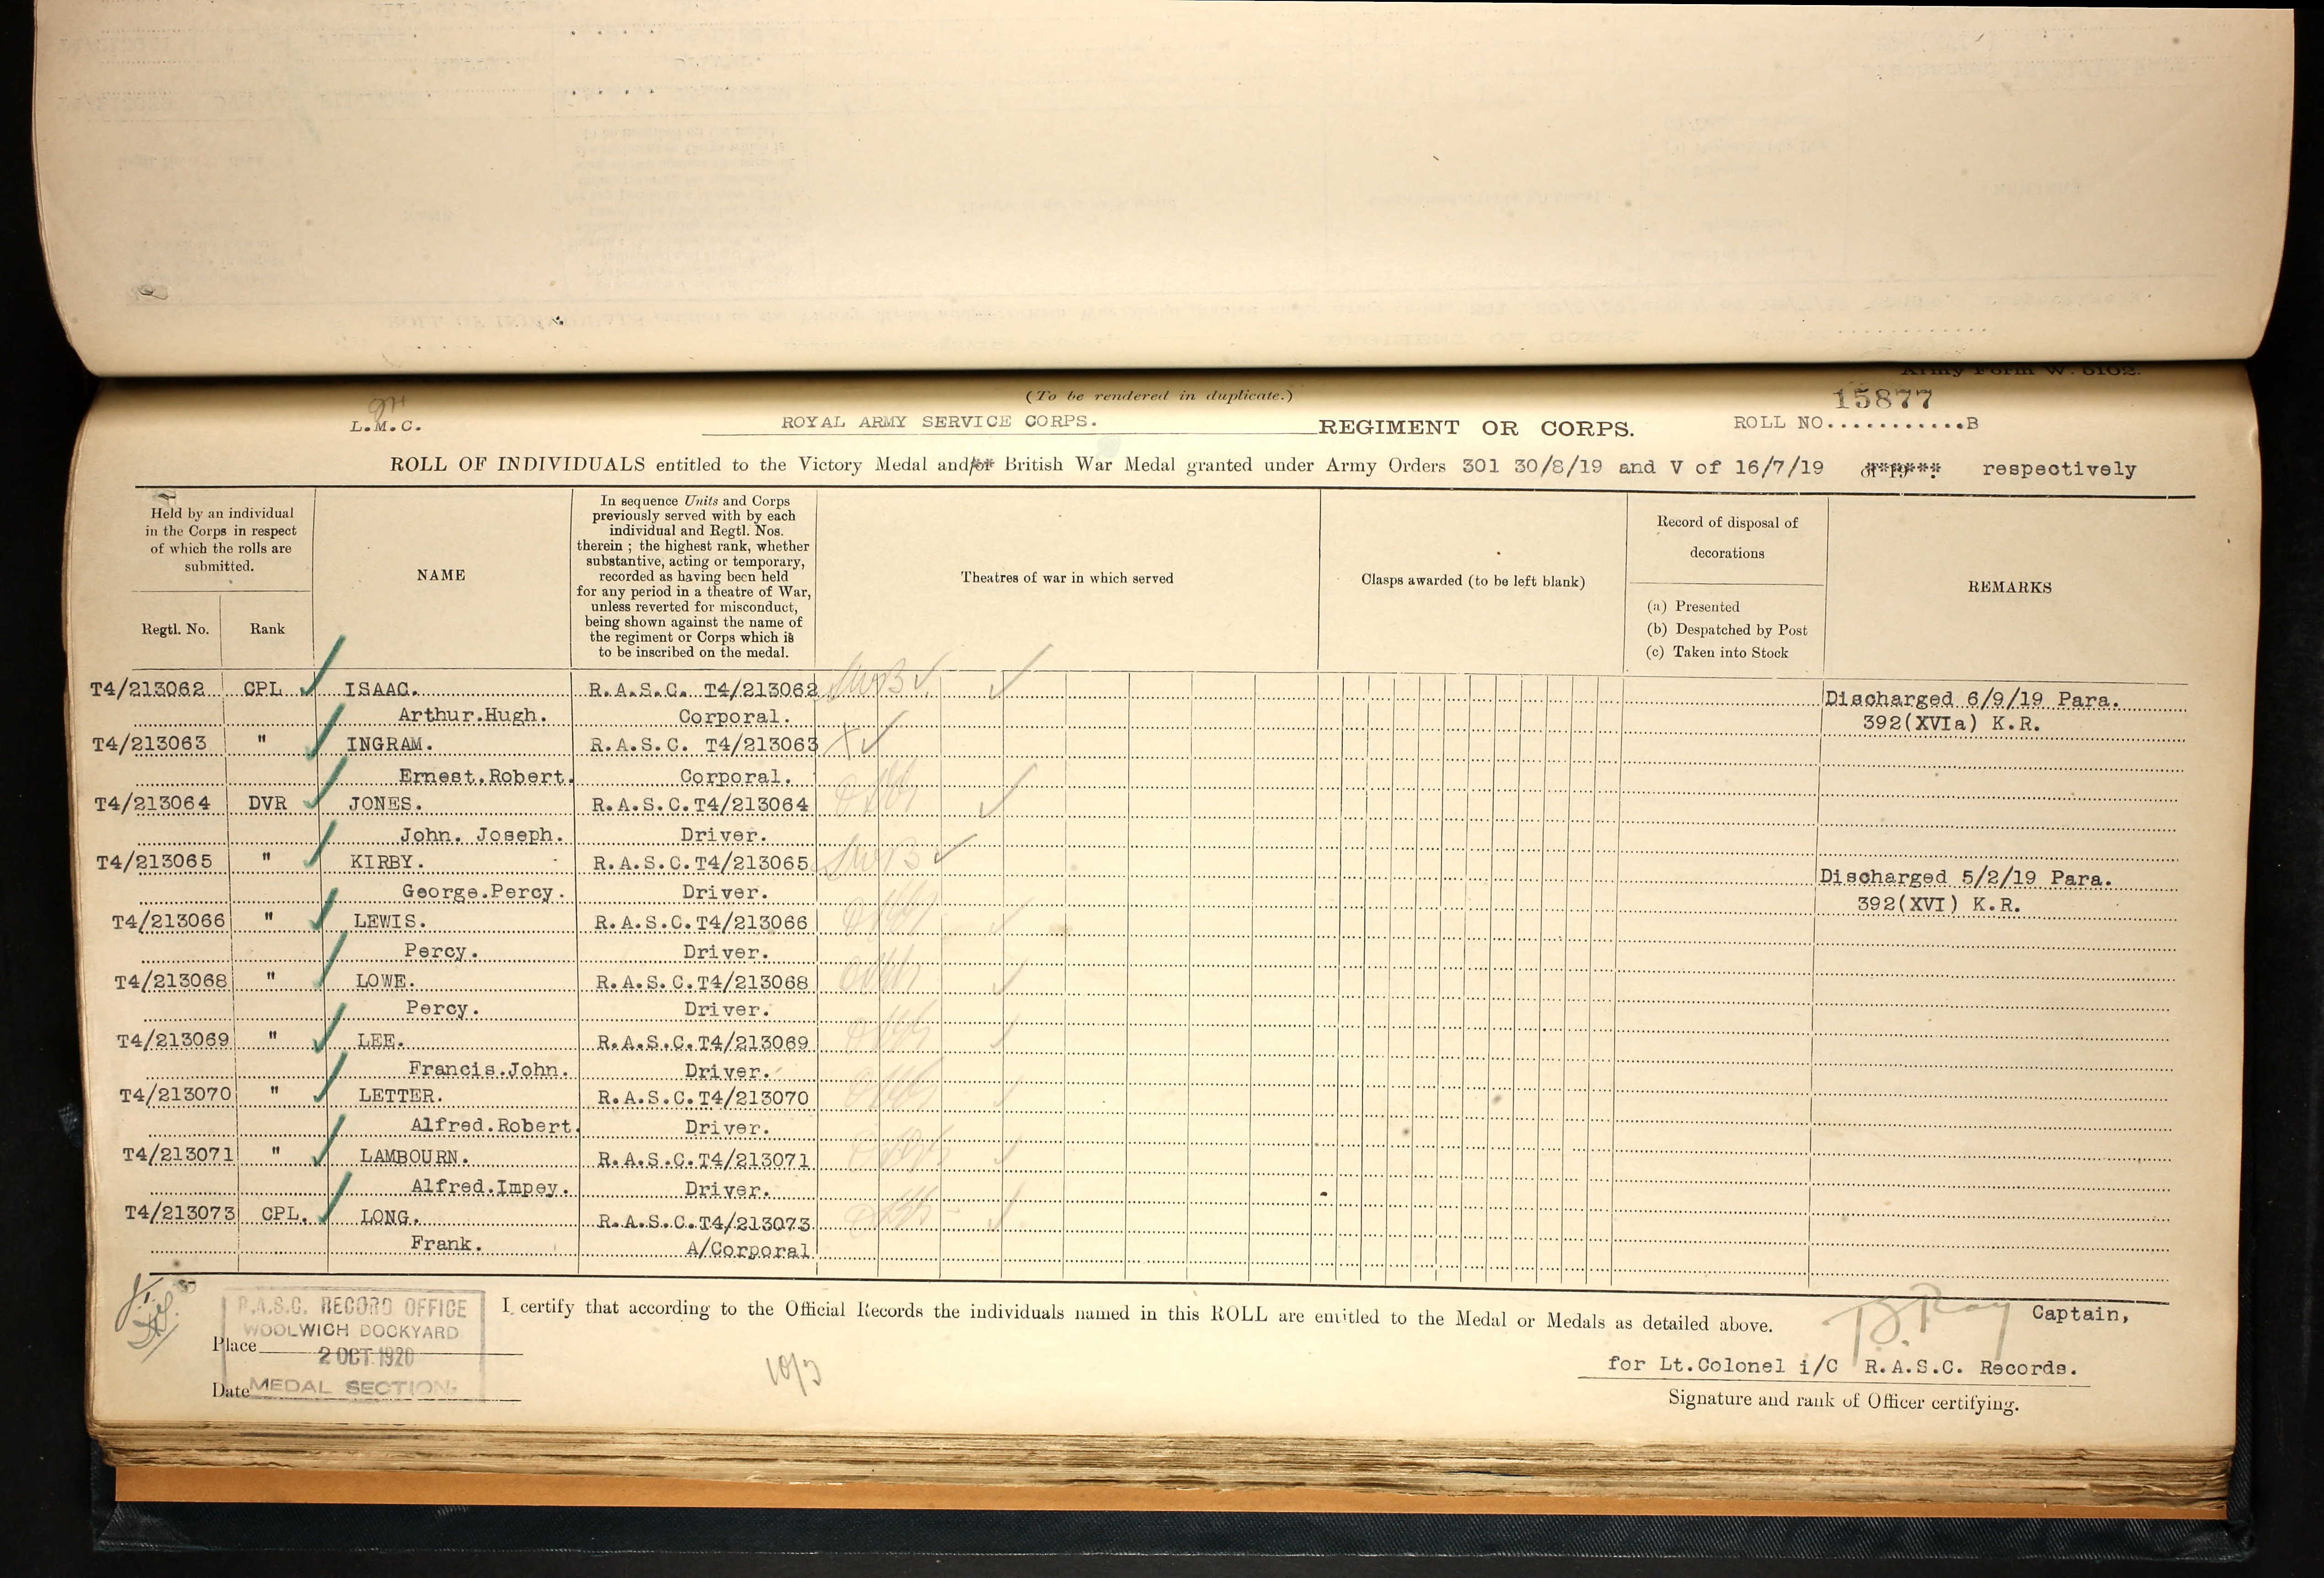 Army Form W. 5102.
(To be rendered in duplicate.)
15877
L.M.C. ROYAL ARMY SERVICE CORPS. REGIMENT OR CORPS. ROLL NO............B
ROLL OF INDIVIDUALS entitled to the Victory Medal and/or British War Medal granted under Army Orders 301 30/8/19 and V of 16/7/19 respectively
Held by an individual
in the Corps in respect
of which the rolls are
submitted.
Regtl. No. Rank
NAME
In sequence Units and Corps
previously served with by each
individual and Regtl. Nos.
therein ; the highest rank, whether
substantive, acting or temporary,
recorded as having been held
for any period in a theatre of War,
unless reverted for misconduct,
being shown against the name of
the regiment or Corps which is
to be inscribed on the medal.
Theatres of war in which served
Clasps awarded (to be left blank)
Record of disposal of
decorations
(a) Presented
(b) Despatched by Post
(c) Taken into Stock
REMARKS
T4/213062 CPL ISAAC. R.A.S.C. T4/213062 Discharged 6/9/19 Para.
Arthur.Hugh. Corporal. 392(XVIa) K.R.
T4/213063 " INGRAM. R.A.S.C. T4/213063
Ernest.Robert. Corporal.
T4/213064 DVR JONES. R.A.S.C.T4/213064
John. Joseph. Driver.
T4/213065 " KIRBY. R.A.S.C.T4/213065 Discharged 5/2/19 Para.
George.Percy. Driver. 392(XVI) K.R.
T4/213066 " LEWIS. R.A.S.C.T4/213066
Percy. Driver.
T4/213068 " LOWE. R.A.S.C.T4/213068
Percy. Driver.
T4/213069 " LEE. R.A.S.C.T4/213069
Francis.John. Driver.
T4/213070 " LETTER. R.A.S.C.T4/213070
Alfred.Robert. Driver.
T4/213071 " LAMBOURN. R.A.S.C.T4/213071
Alfred.Impey. Driver.
T4/213073 CPL. LONG. R.A.S.C.T4/213073
Frank. A/Corporal
I certify that according to the Official Records the individuals named in this ROLL are entitled to the Medal or Medals as detailed above.
R.A.S.C. RECORD OFFICE
WOOLWICH DOCKYARD
2 OCT 1920
MEDAL SECTION
Place
Date
10/3
B. Ray Captain,
for Lt.Colonel i/C R.A.S.C. Records.
Signature and rank of Officer certifying.